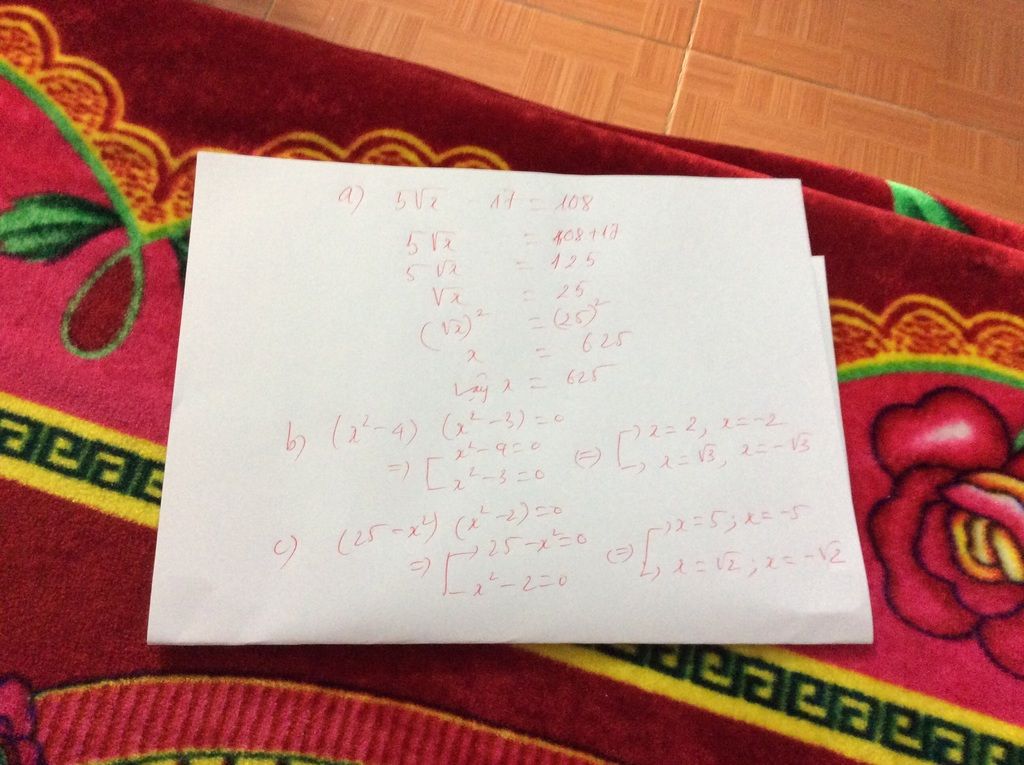 a) 5√x 17 = 108
5√x = 108+17
5√x = 125
√x = 25
(√x)² = (25)²
x = 625
Vậy x = 625
b) (x²-4) (x²-3)=0
=> [ x²-4=0 (=) [ x=2, x=-2
x²-3=0 x=√3, x=-√3
c) (25-x²) (x²-2)=0
=> [ 25-x²=0 (=) [ x=5; x=-5
x²-2=0 x=√2; x=-√2